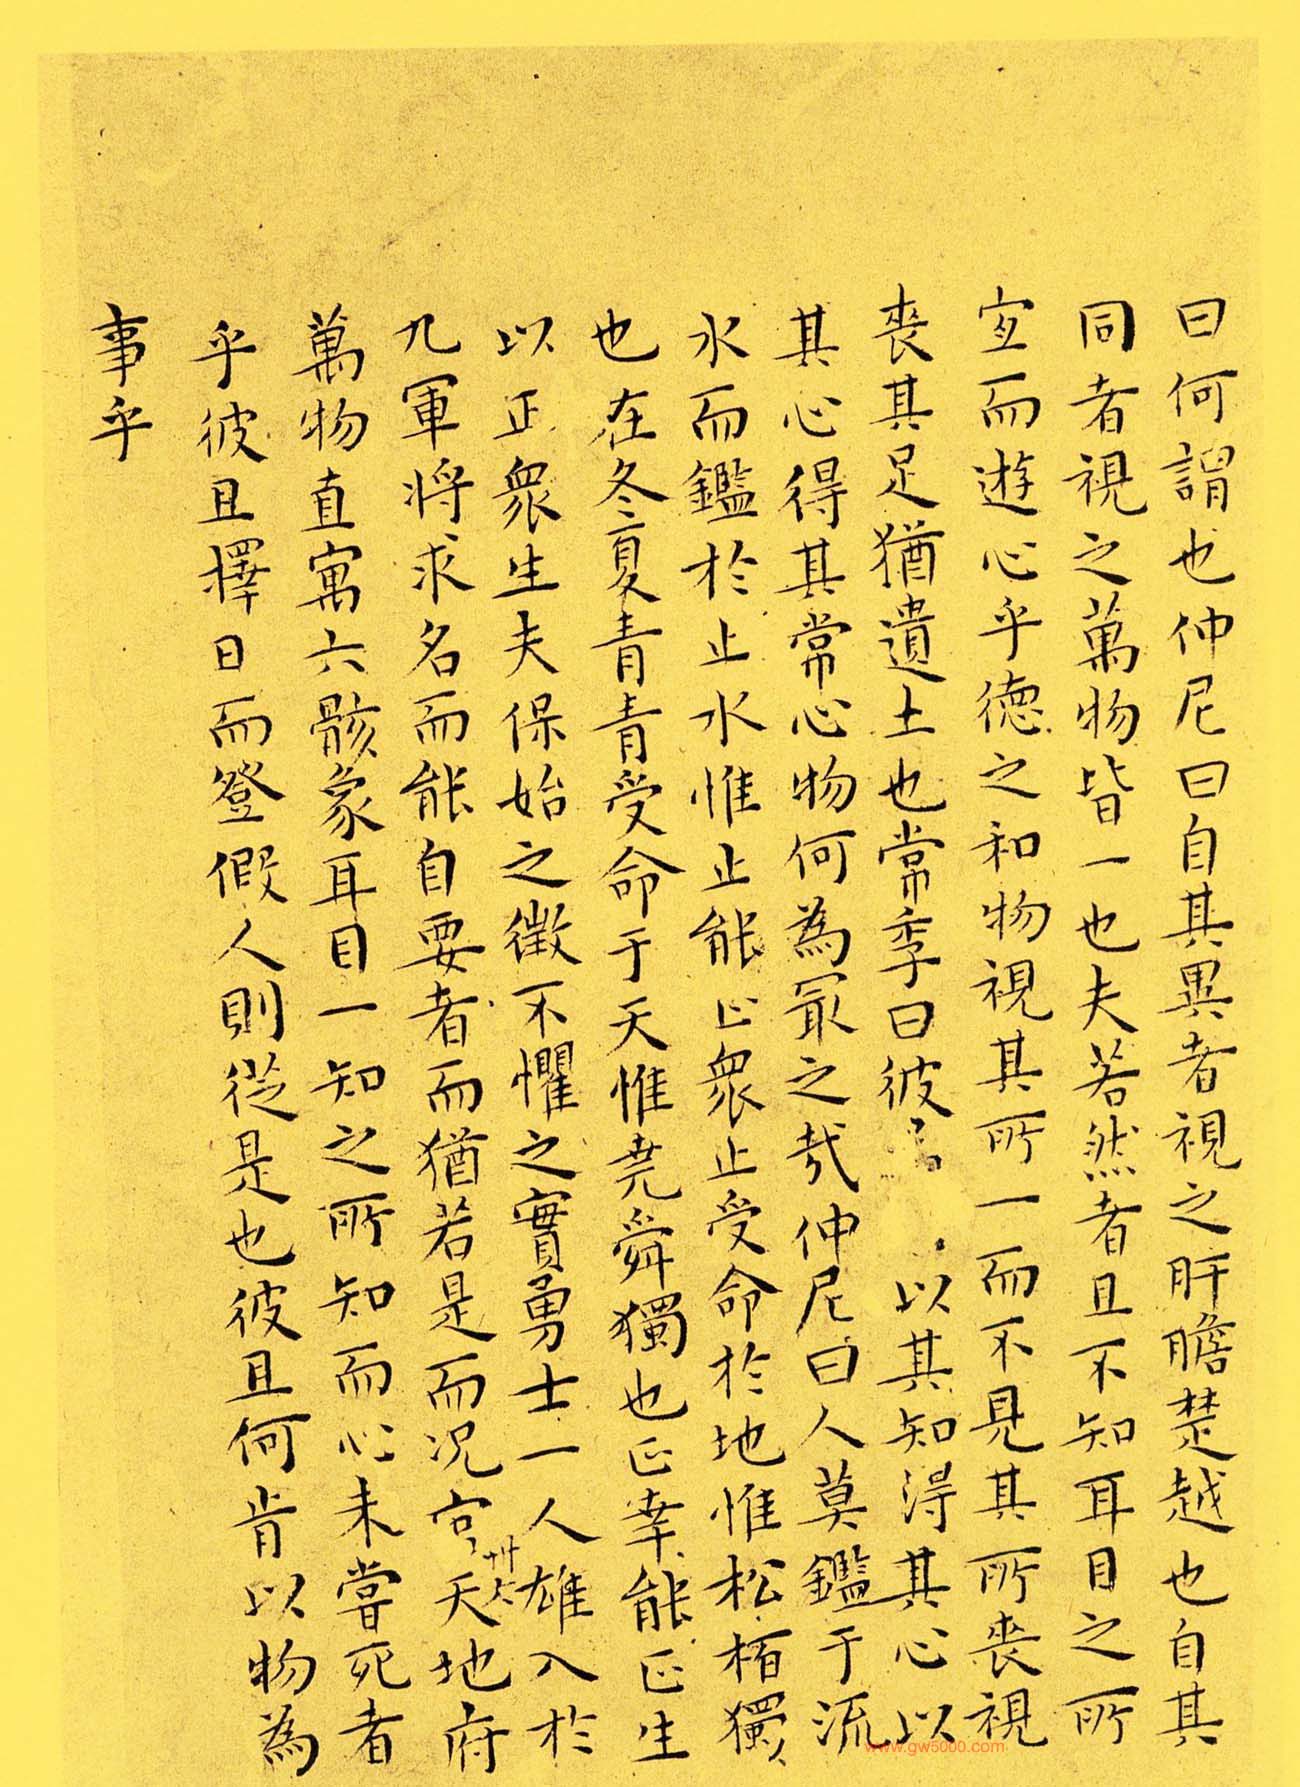 曰何謂也仲尼曰自其異者視之肝膽楚越也自其
同者視之萬物皆一也夫若然者且不知耳目之所
宜而遊心乎德之和物視其所一而不見其所喪視
喪其足猶遺土也常季曰彼 以其知得其心以
其心得其常心物何為最之哉仲尼曰人莫鑑于流
水而鑑於止水惟止能止眾止受命於地惟松栢獨
也在冬夏青青受命于天惟堯舜獨也正幸能正生
以正眾生夫保始之徵不懼之實勇士一人雄入於
九軍將求名而能自要者而猶若是而況官天地府
萬物直寓六骸象耳目一知之所知而心未嘗死者
乎彼且擇日而登假人則從是也彼且何肯以物為
事乎
www.gw5000.com